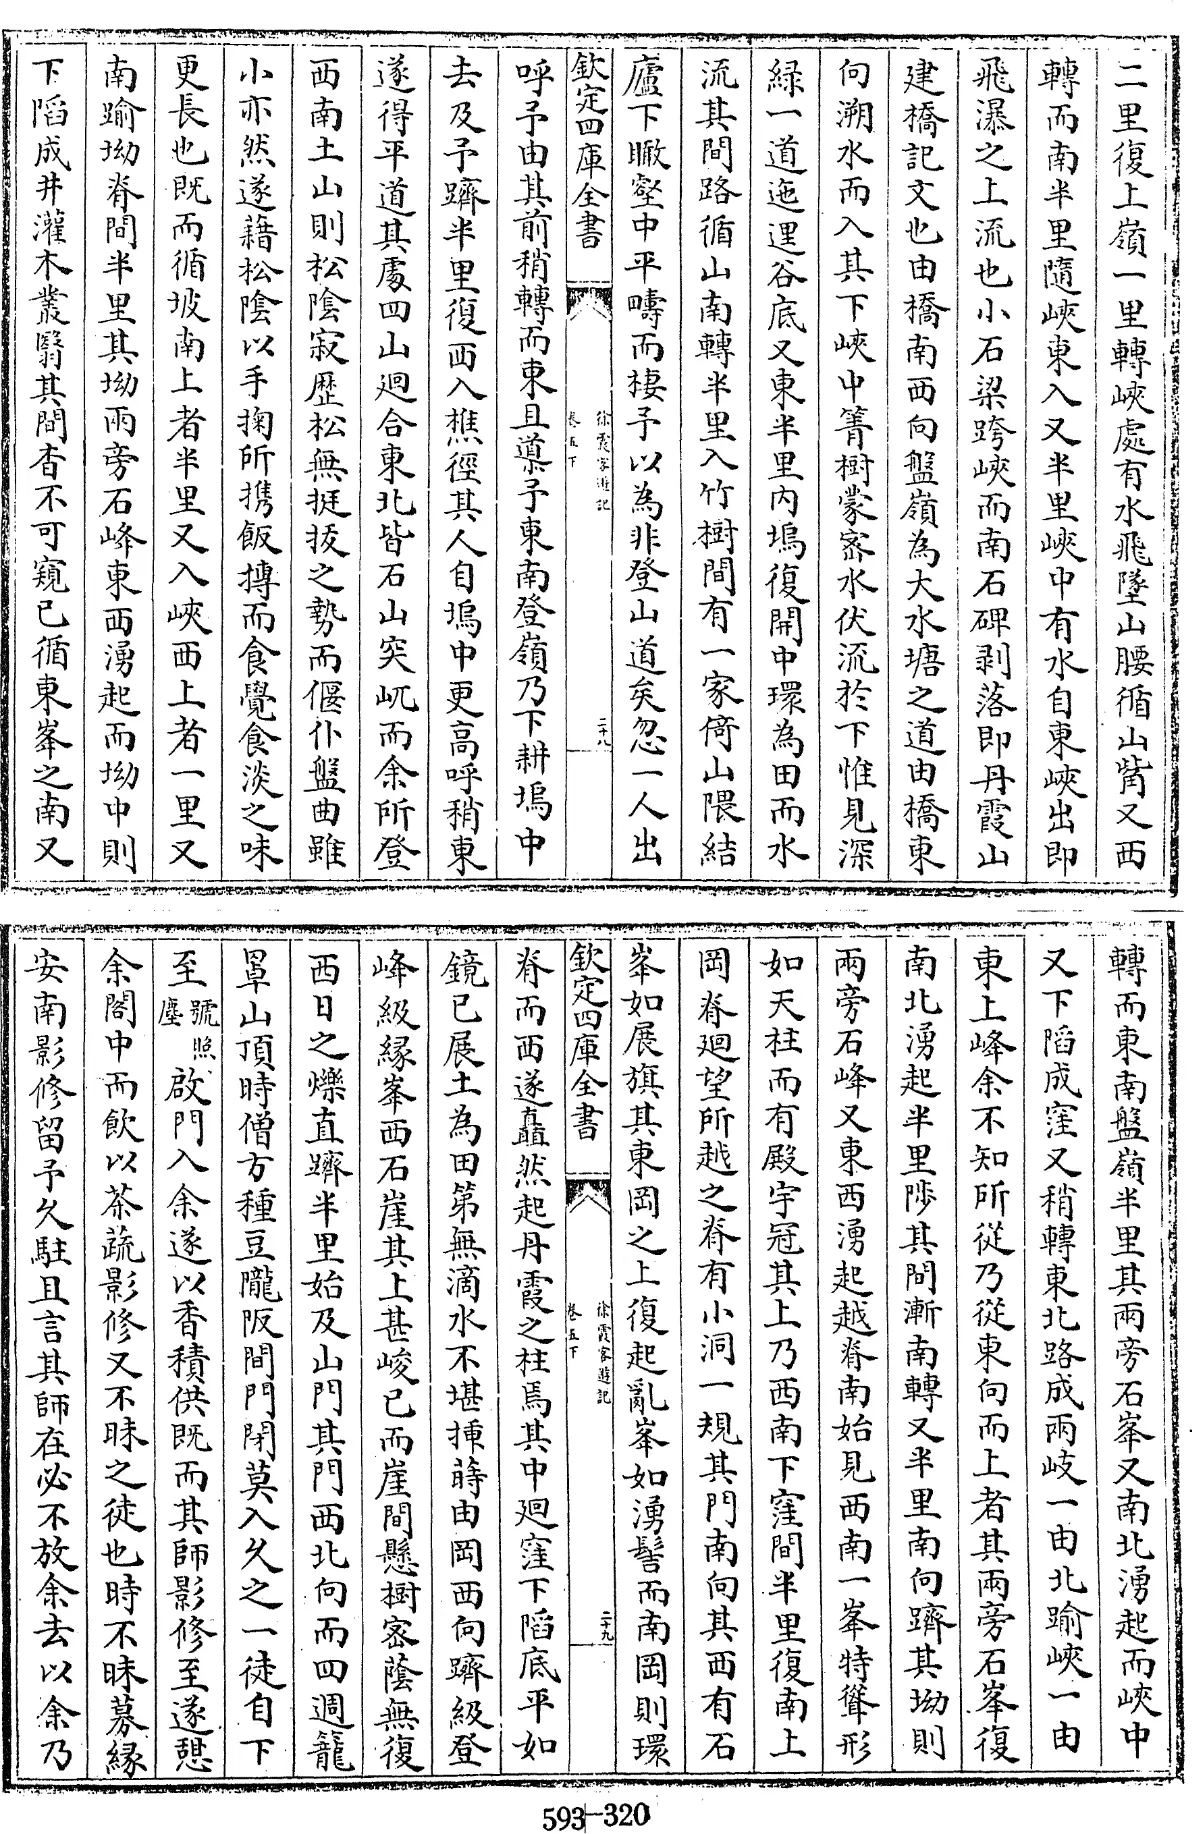 二里復上嶺一里轉峽處有水飛墜山腰循山觜又西
轉而南半里隨峽東入又半里峽中有水自東峽出即
飛瀑之上流也小石梁跨峽而南石碑剥落即丹霞山
建橋記文也由橋南西向盤嶺為大水塘之道由橋東
向溯水而入其下峽中箐樹蒙密水伏流於下惟見深
緑一道迤邐谷底又東半里内塢復開中環為田而水
流其間路循山南轉半里入竹樹間有一家倚山隈結
廬下瞰壑中平疇而棲予以為非登山道矣忽一人出
呼予由其前稍轉而東且導予東南登嶺乃下耕塢中
去及予躋半里復西入樵徑其人自塢中更高呼稍東
遂得平道其處四山迴合東北皆石山突屼而余所登
西南土山則松陰寂歷松無挺拔之勢而偃仆盤曲雖
小亦然遂藉松陰以手掬所携飯摶而食覺食淡之味
更長也既而循坡南上者半里又入峽西上者一里又
南踰坳脊間半里其坳兩旁石峰東西湧起而坳中則
下䧟成井灌木叢翳其間杳不可窺已循東峯之南又
欽定四庫全書
徐霞客遊記
卷五下
二十八
轉而東南盤嶺半里其兩旁石峯又南北湧起而峽中
又下䧟成窪又稍轉東北路成兩岐一由北踰峽一由
東上峰余不知所從乃從東向而上者其兩旁石峯復
南北湧起半里陟其間漸南轉又半里南向躋其坳則
兩旁石峰又東西湧起越脊南始見西南一峯特聳形
如天柱而有殿宇冠其上乃西南下窪間半里復南上
岡脊迴望所越之脊有小洞一規其門南向其西有石
峯如展旗其東岡之上復起亂峯如湧髻而南岡則環
脊而西遂矗然起丹霞之柱焉其中迴窪下䧟底平如
鏡已展土為田第無滴水不堪揷蒔由岡西向躋級登
峰級緣峯西石崖其上甚峻已而崖間懸樹密蔭無復
西日之爍直躋半里始及山門其門西北向而四週籠
罩山頂時僧方種豆隴阪間門閉莫入久之一徒自下
至號照塵啟門入余遂以香積供既而其師影修至遂憩
余閣中而飲以茶蔬影修又不昧之徒也時不昧募緣
安南影修留予久駐且言其師在必不放余去以余乃
欽定四庫全書
徐霞客遊記
卷五下
二十九
593-320